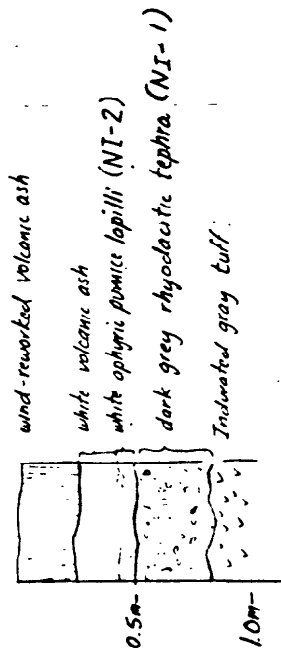 wind-reworked volcanic ash
white volcanic ash
white aphyric pumice lapilli (NI-2)
dark grey rhyodacitic tephra (NI-1)
Indurated gray tuff.
0.5m-
1.0m-